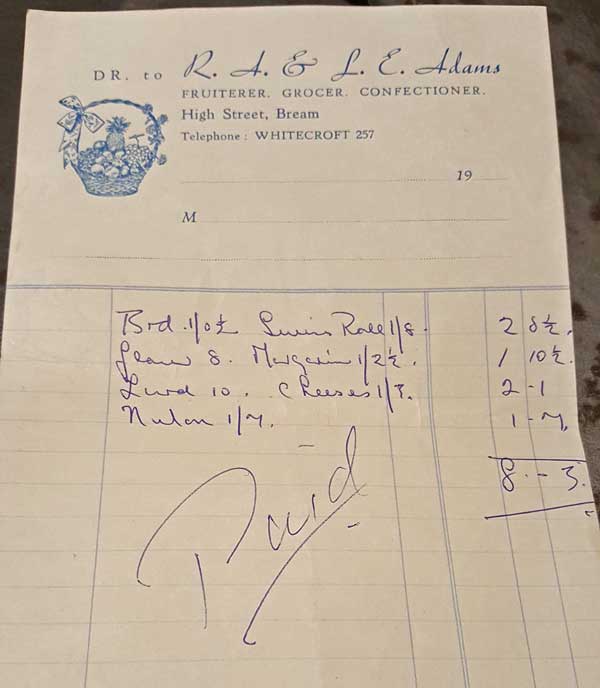 DR. to R. A. & L. E. Adams
FRUITERER. GROCER. CONFECTIONER.
High Street, Bream
Telephone: WHITECROFT 257
19
M
Brd. 1/0½ Swiss Roll 1/8. 2 8½.
8. Margarin 1/2½. 1 10½.
Lard 10. Cheeses 1/3. 2-1
1/7. 1-7.
8--3.
Paid